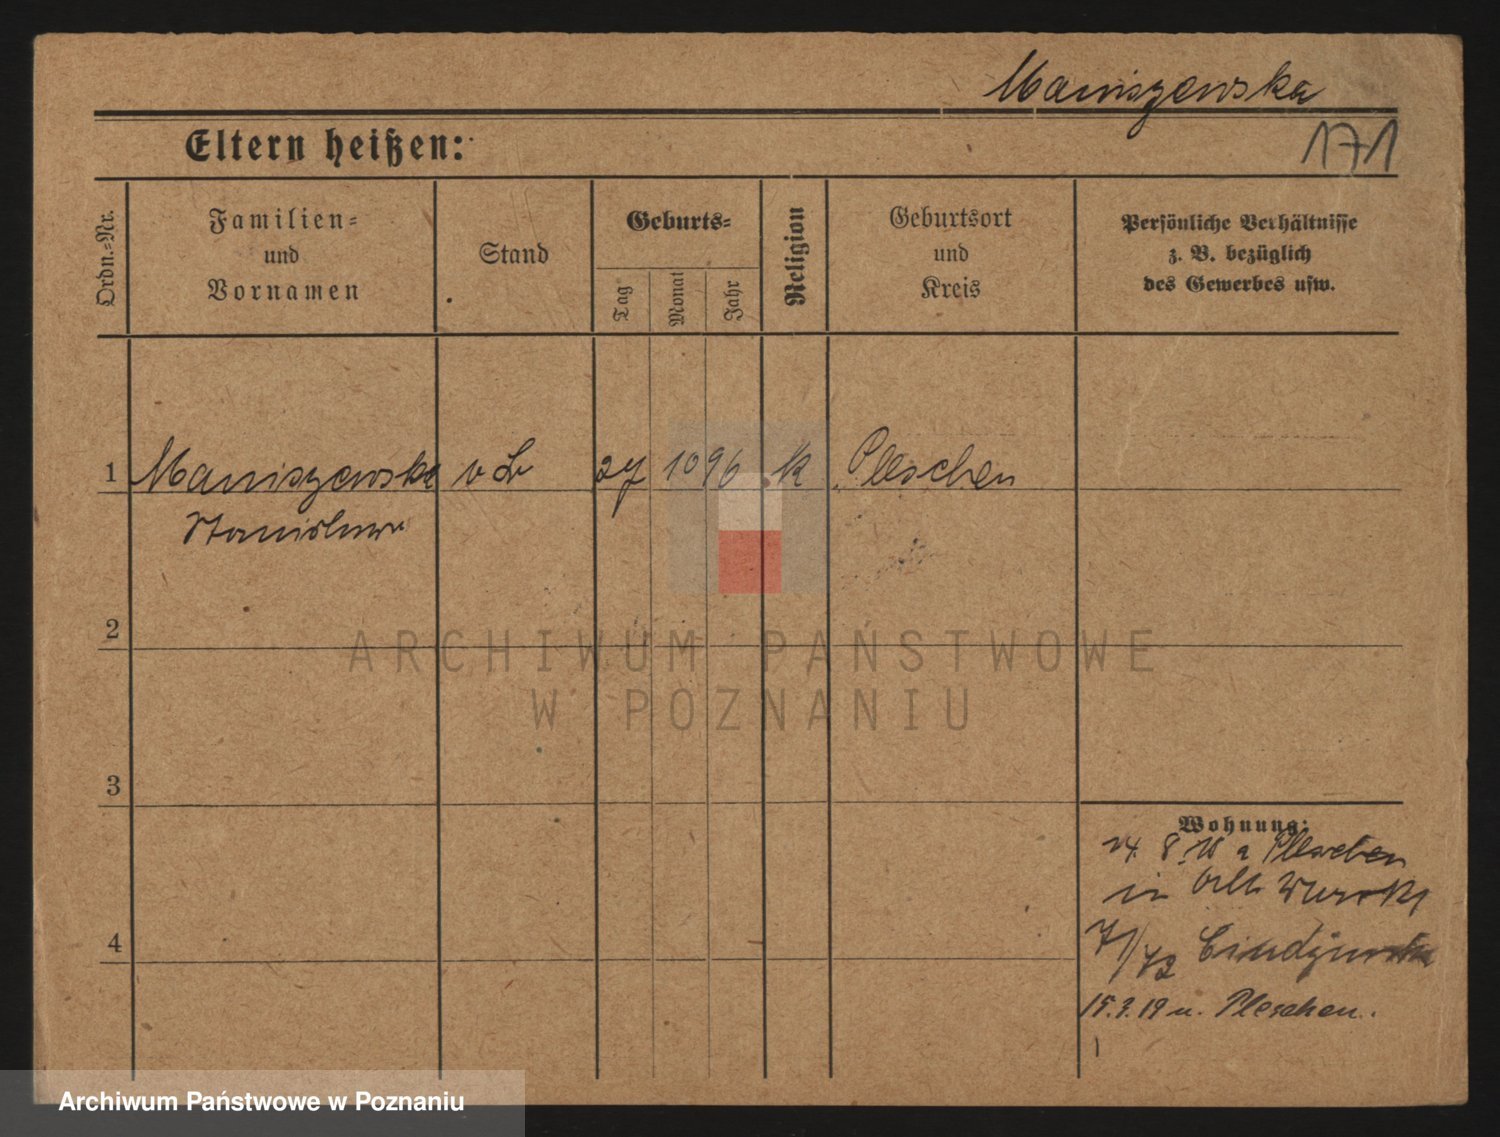 Maniszewska
171
Eltern heißen:
Ordn.=Nr.
Familien=
und
Vornamen
Stand
Geburts=
Tag
Monat
Jahr
Religion
Geburtsort
und
Kreis
Persönliche Verhältnisse
z. B. bezüglich
des Gewerbes usw.
1
Maniszewska
v L
27
10
96
k
Pleschen
Stanislawa
2
ARCHIWUM PAŃSTWOWE
W POZNANIU
3
Wohnung:
24. 8. 18 a Pleschen
in
71/72
4
15.3.19 n. Pleschen.
Archiwum Państwowe w Poznaniu